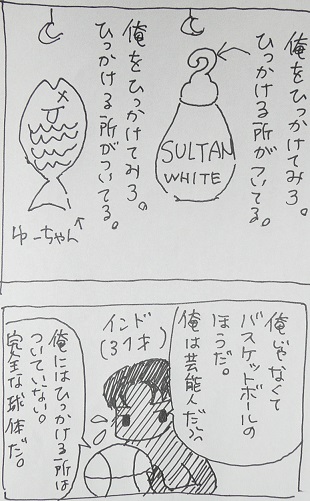 俺をひっかけてみろ。
ひっかける所がついてる。
SULTAN
WHITE
俺をひっかけてみろ。
ひっかける所がついてる。
ゆーちゃん
俺じゃなくて
バスケットボールの
ほうだ。
俺は芸能人だぞ
インド
(31才)
俺にはひっかける所は
ついていない。
完全な球体だ。